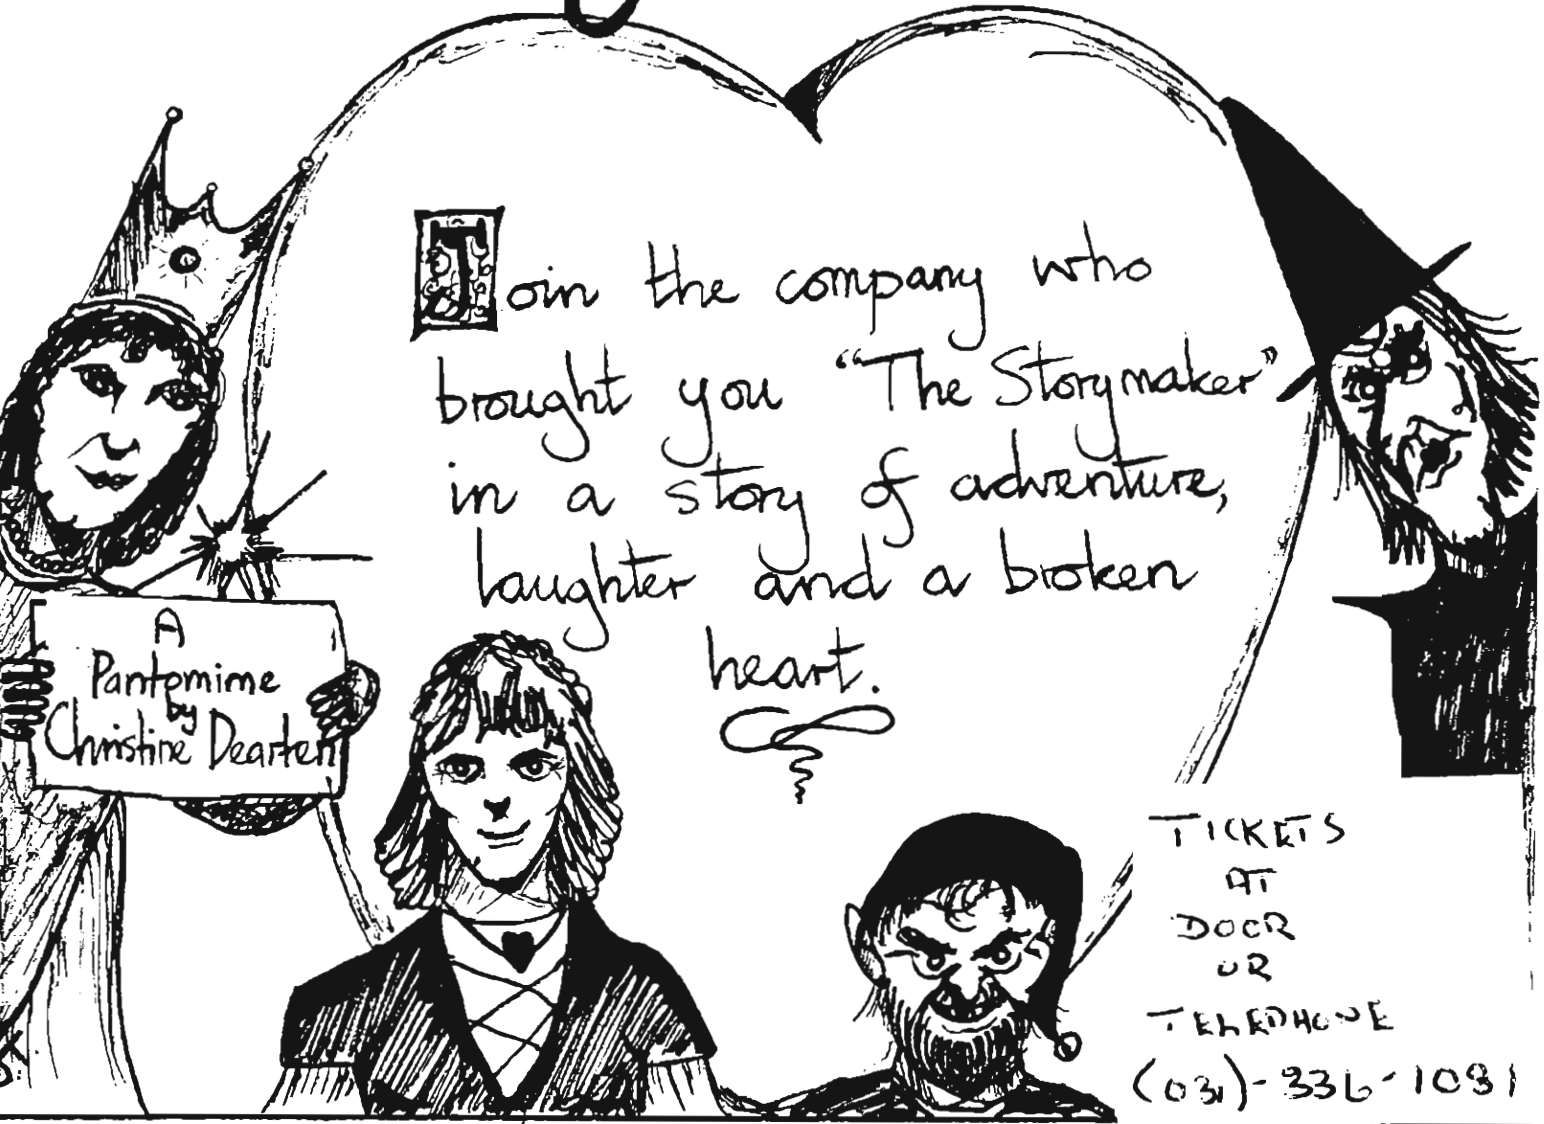 Join the company who
brought you "The Storymaker"
in a story of adventure,
laughter and a broken
heart.
A
Pantomime
by
Christine Dearten
TICKETS
AT
DOOR
OR
TELEPHONE
(031)-336-1031